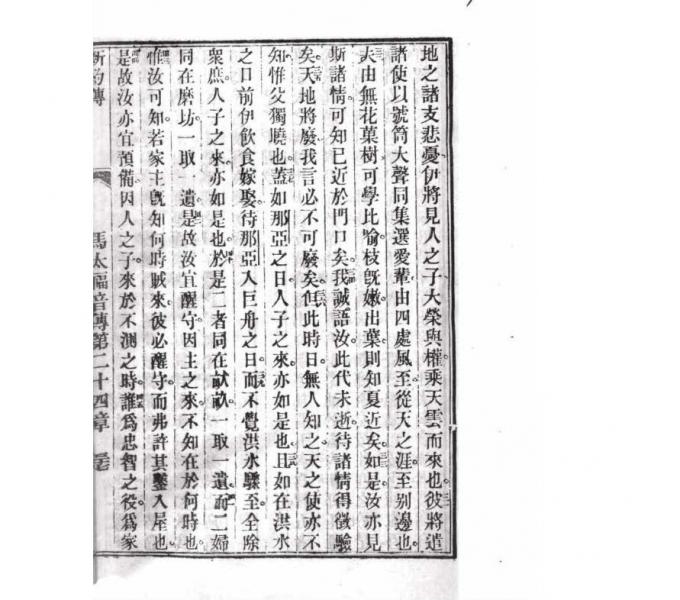 地之諸支悲憂伊將見人之子大榮與權乘天雲而來也彼將遣
諸使以號筒大聲同集選愛輩由四處風至從天之涯至別邊也
夫由無花菓樹可學比喻枝旣嫩出葉則知夏近矣如是汝亦見
斯諸情可知已近於門口矣我誠語汝此代未逝待諸情得徵驗
矣天地將廢我言必不可廢矣但此時日無人知之天之使亦不
知惟父獨曉也蓋如那亞之日人子之來亦如是也且如在洪水
之日前伊飲食嫁娶待那亞入巨舟之日而不覺洪水驟至全除
衆庶人子之來亦如是也於是二者同在畝畝一取一遺而二婦
同在磨坊一取一遺是故汝宜醒守因主之來不知在於何時也
惟汝可知若家主旣知何時賊來彼必醒守而弗許其鑿入屋也
是故汝亦宜預備因人之子來於不測之時誰爲忠智之役爲家
新約傳 馬太福音傳第二十四章